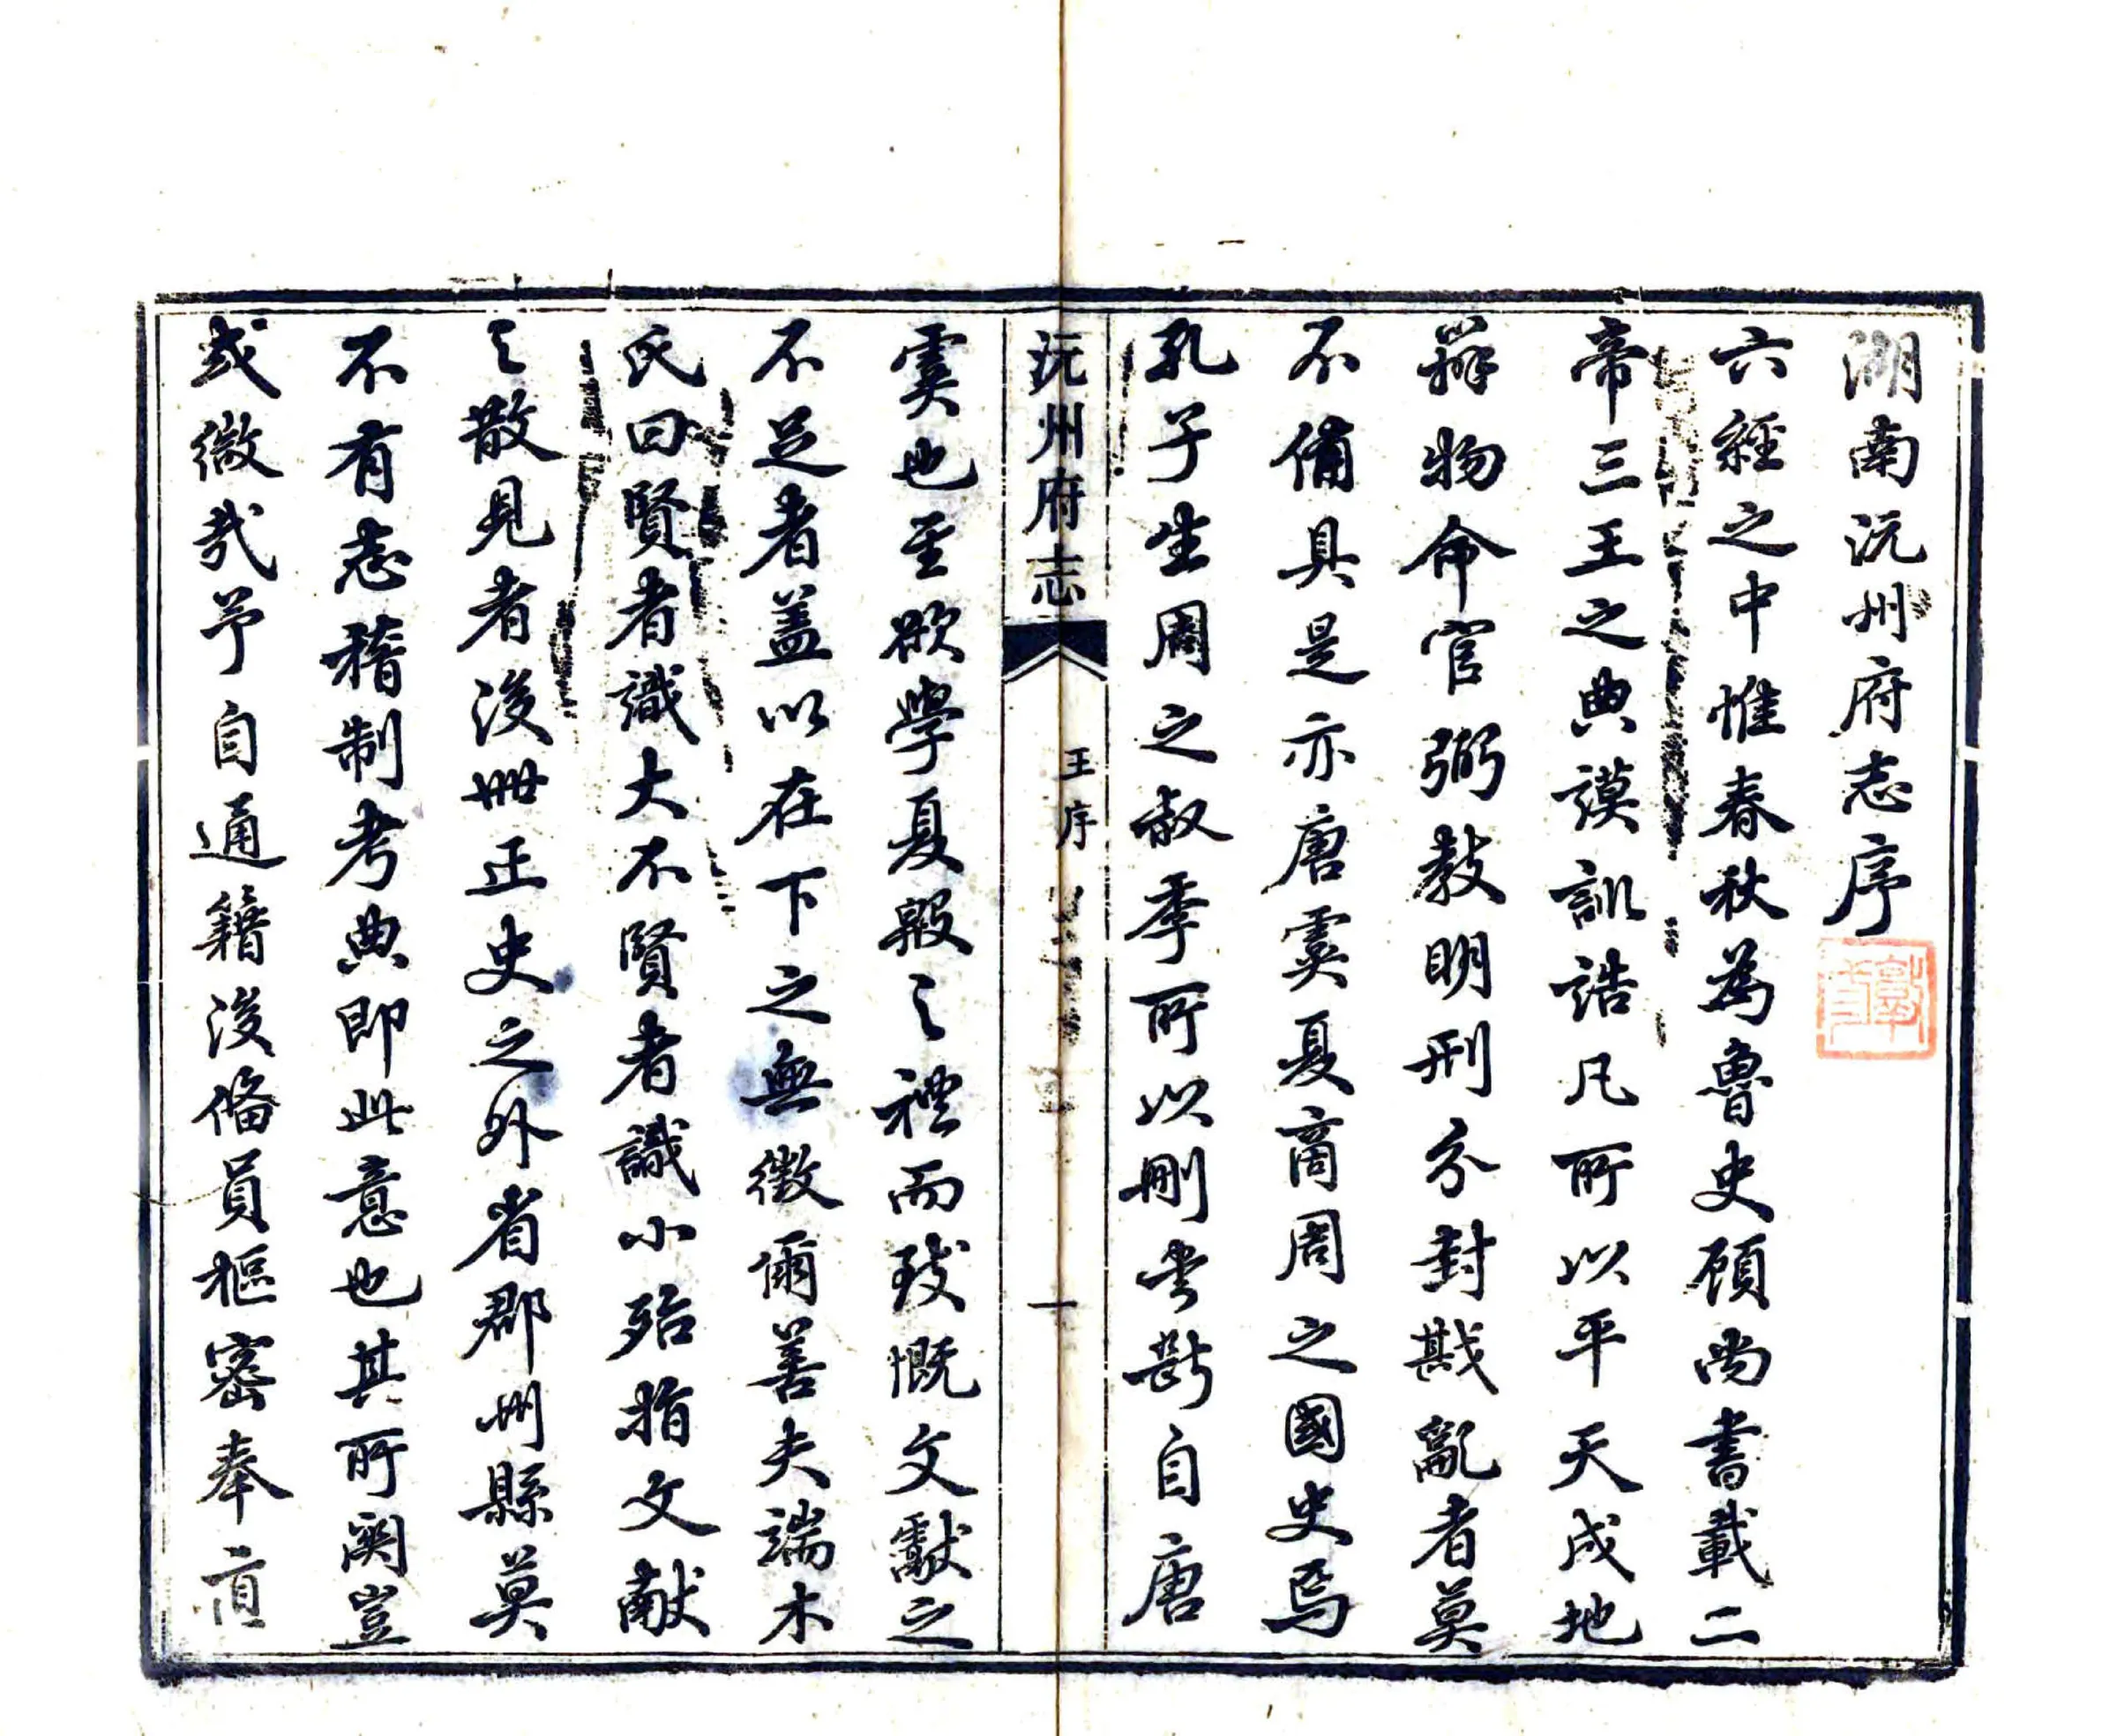 湖南沅州府志序
六經之中惟春秋為魯史顧尚書載二
帝三王之典謨訓誥凡所以平天成地
辨物命官弼教明刑分封戡亂者莫
不備具是亦唐虞夏商周之國史焉
孔子生周之叔季所以刪書斷自唐
沅州府志
王序
一
虞也至欲學夏殷之禮而致慨文獻之
不足者蓋以在下之無徵爾善夫端木
氏曰賢者識大不賢者識小殆指文献
之散見者後世正史之外省郡州縣莫
不有志稽制考典即此意也其所関豈
或微哉予自通籍後偹員樞密奉